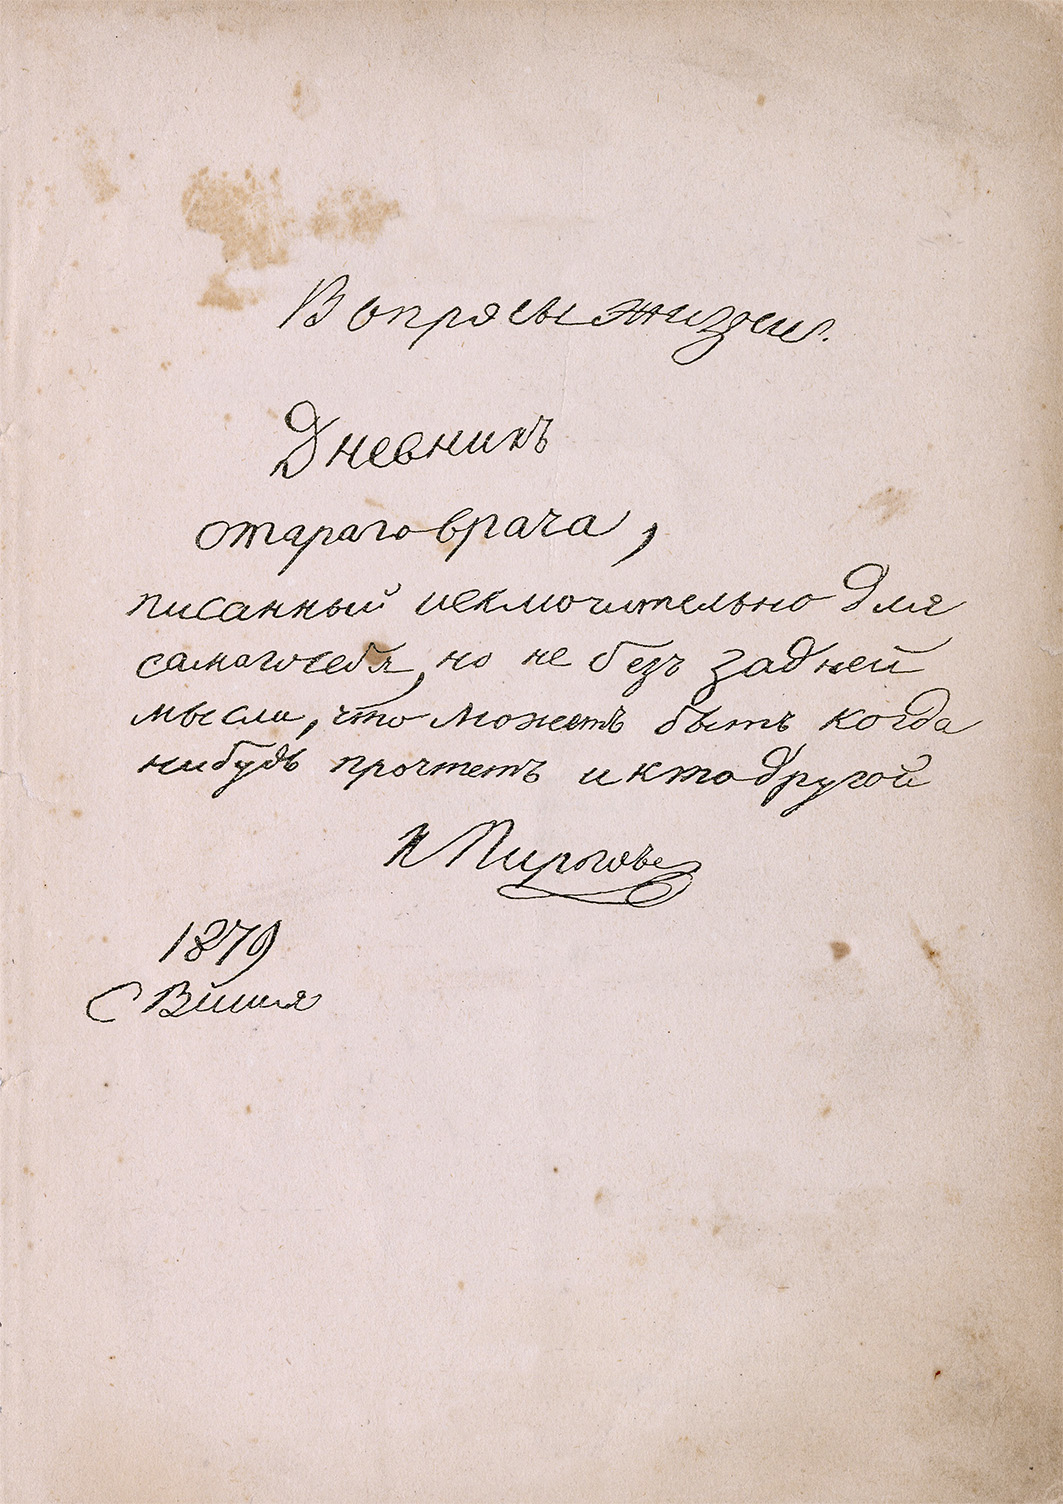 Вопросы жизни.
Дневникъ
стараго врача,
писанный исключительно для
самаго себя, но не безъ задней
мысли, что можетъ быть когда
нибудь прочтетъ и кто другой
Н Пироговъ
1879
С Вишня